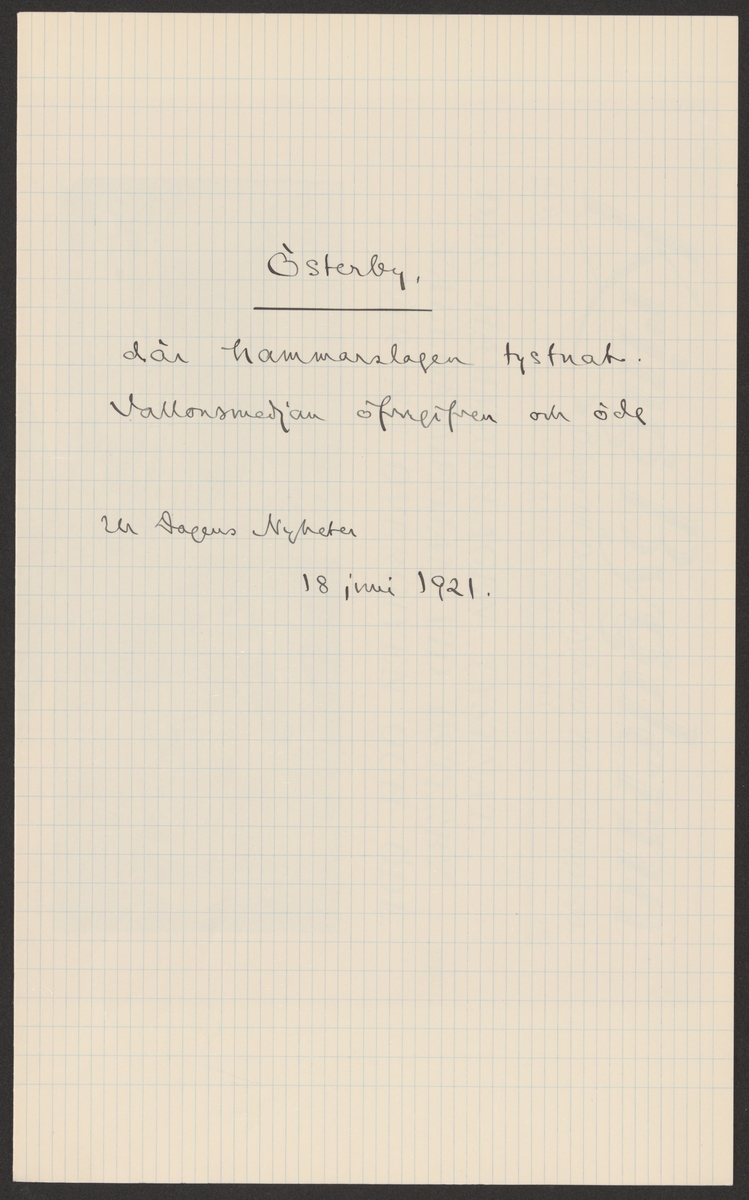 Österby,
där hammarslagen tystnat.
Vallonsmedjan öfvergifven och öde
Ur Dagens Nyheter
18 juni 1921.